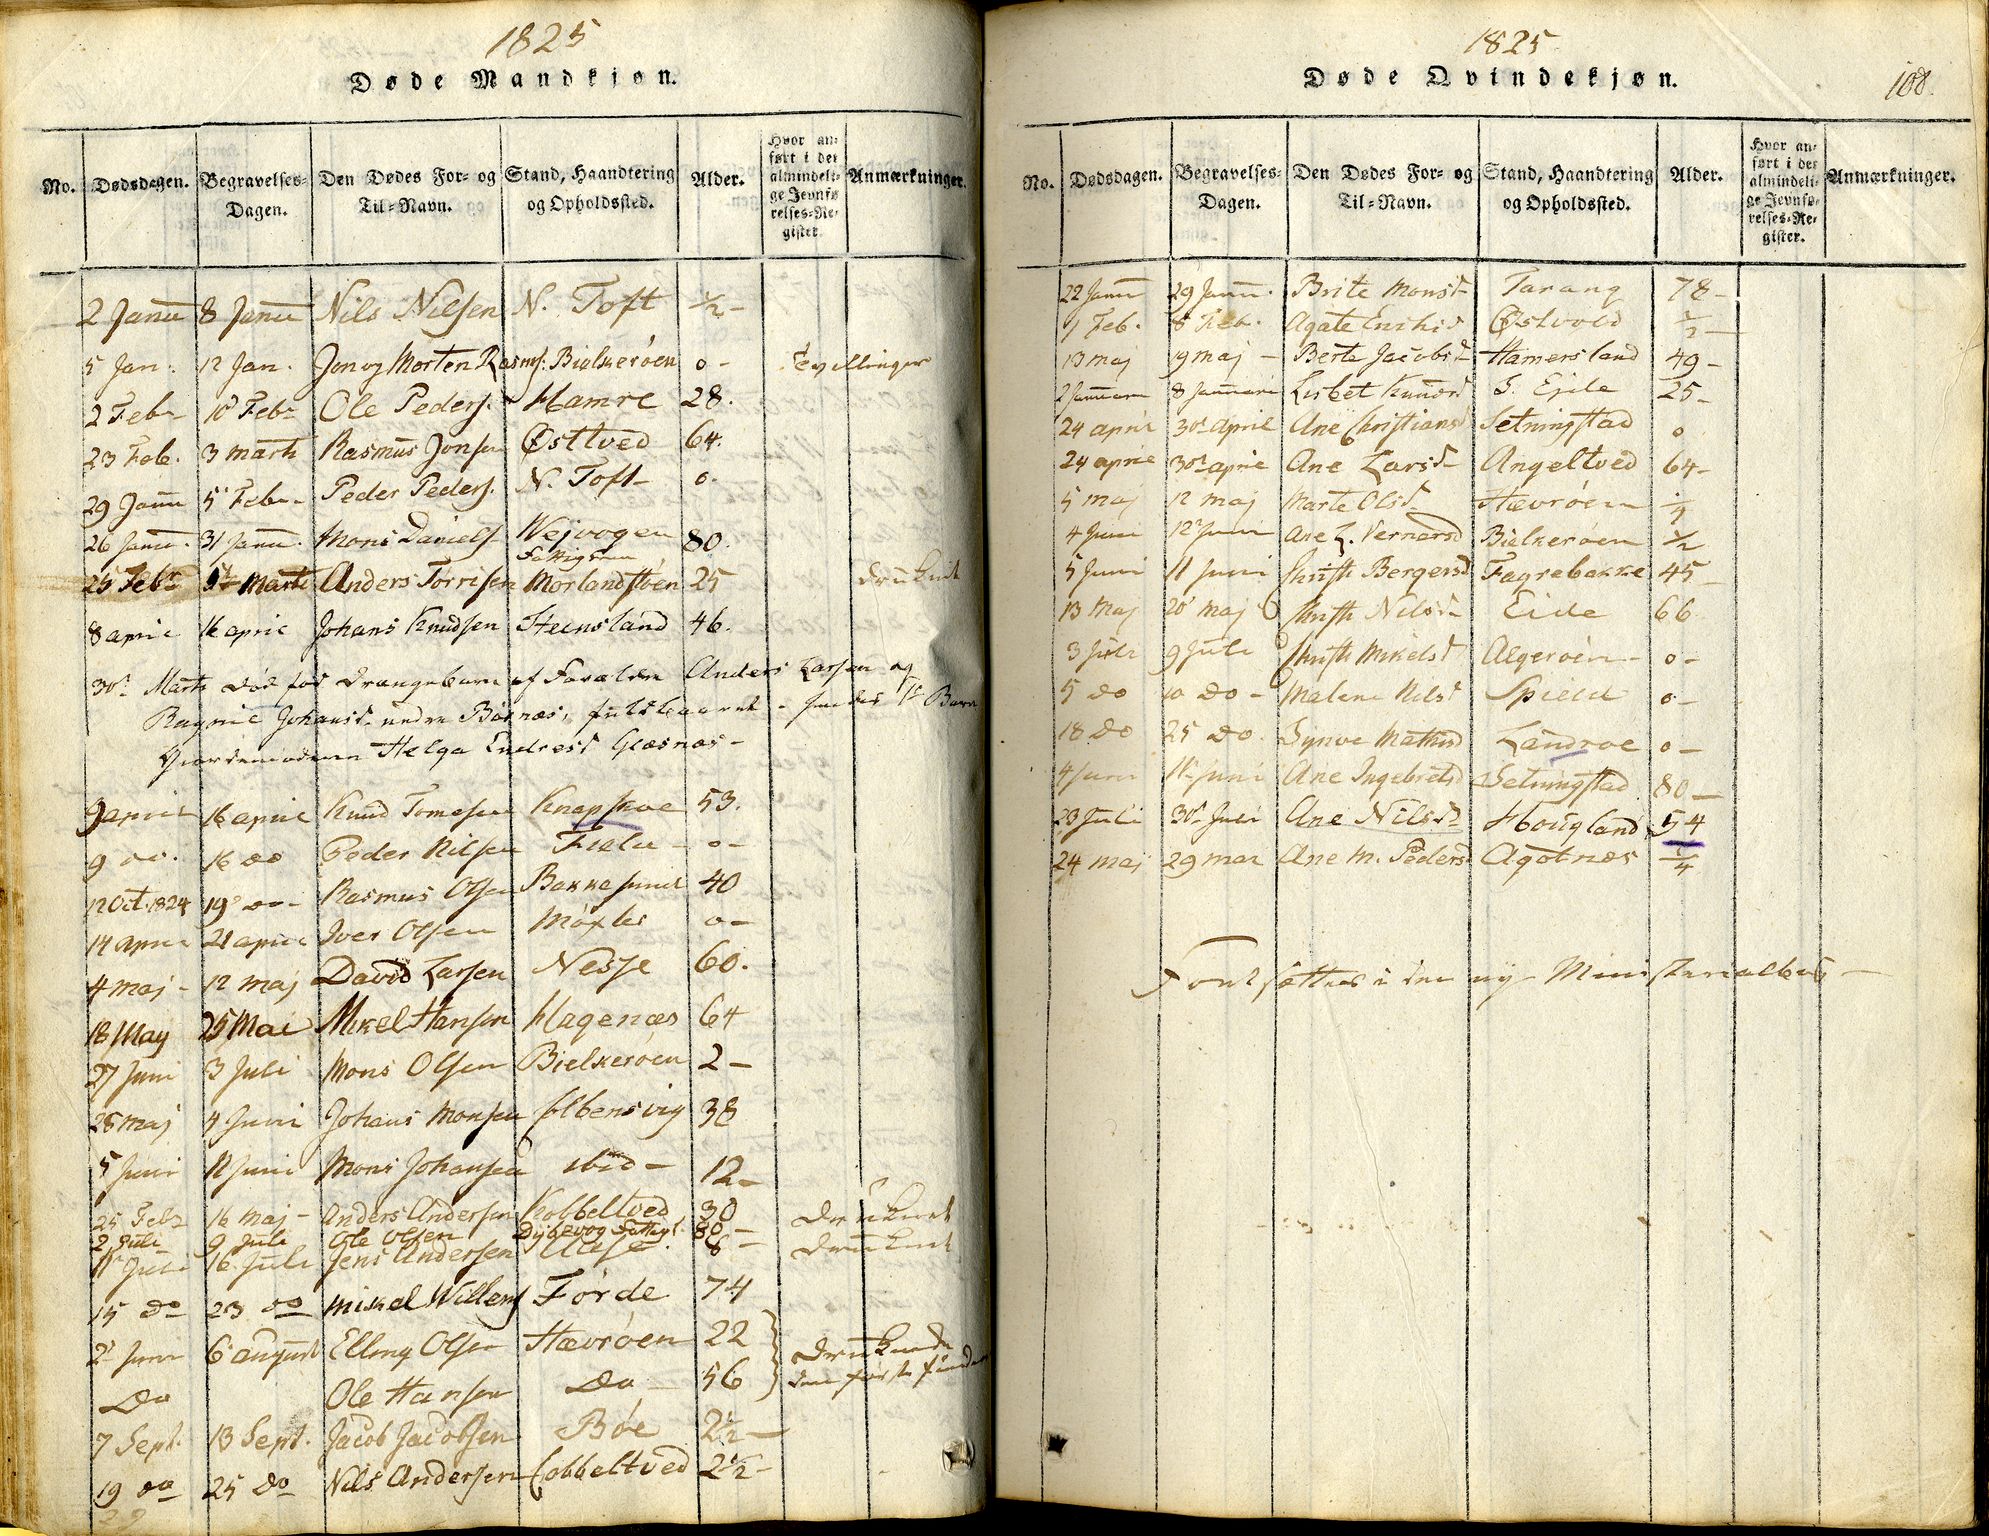 1825
Døde Mandkjøn.
No. Dødsdagen. Begravelses-Dagen. Den Dødes For- og Til-Navn. Stand, Haandtering og Opholdssted. Alder. Hvor anført i det almindelige Jevnførelses-Register. Anmærkninger.
2 Janu 8 Janu Nils Nilsen N. Toft ½ -
5 Jan. 12 Jan. Jon og Morten Rasms. Bielkerøen 0 - Tvillinger
2 Feb 10 Feb Ole Peders. Hamre 28.
23 Feb. 3 Marti Rasmus Jonsen Østtved 64.
29 Janu 5 Feb Peder Peders. N. Toft - 0.
26 Janu. 31 Janu. Mons Daniels Wejvogen 80.
Fattiglem
25 Feb 5 Marti Anders Torrisen Morlandstøen 25 druknit
8 april 16 april Johans Knudsen Steensland 46.
30 Marti død fød Drængebarn af Forældre Anders Larsen og
Ragnie Johansd. nedre Børnæs, fuldbaaret - hendes 1te Barn
Giordemoderen Helga Endresd Glæsnæs -
9 april 16 april Knud Tomesen Knapskoe 53.
9 do. 16 do Peder Nilsen - 0 -
12 Oct. 1824 19 do - Rasmus Olsen Bakkesund 40
14 april 21 april Iver Olsen Møxler 0 -
4 maj - 12 maj David Larsen Nesse 60.
18 May 25 Mai Mikel Hansen Hagenæs 64
27 Juni 3 Juli Mons Olsen Bielkerøen 2 -
28 maj 4 Juni Johans Monsen Colbensvig 38
5 Juni 11 Juni Mons Johansen ibid - 12 -
25 Feb 16 Maj - Anders Andersen Kobbeltved 30 druknet
2 Juli 9 Juli Ole Olsen Dybevog Fattigl. 80 -
11 Juli 16 Juli Jens Andersen 8 - druknet
15 do 23 do Mikel Willems Førde 74
2 Juni 6 august Elling Olsen Hævrøen 22 druknede
Do Ole Hansen Do - 56 den første funden
7 Sept. 13 Sept. Jacob Jacobsen Bøe 2½ -
19 do 25 do Nils Andersen Cobbeltved 2½ -
29
1825
Døde Qvindekjøn.
108.
No. Dødsdagen. Begravelses-Dagen. Den Dødes For- og Til-Navn. Stand, Haandtering og Opholdssted. Alder. Hvor anført i det almindelige Jevnførelses-Register. Anmærkninger.
22 Janu 29 Janu. Brite Monsd Tarang 78 -
1 Feb. 8 Feb. Agate Østvold ½ -
13 maj 19 maj - Berte Jacobsd Hamersland 49 -
2 Januarii 8 Januarii Lisbet Knudsd S. Ejde 25 -
24 april 30 april Ane Christiansd Setningstad 0
24 april 30 april Ane Larsd - Angeltved 64 -
5 maj 12 maj Marte Olsd - Hævrøen ¼
4 Juni 12 Juni Ane L. Vernersd Bielkerøen ½
5 Juni 11 Juni Christi Bergersd Fagrebakke 45 -
13 Maj 20 maj Christi Nilsd - Eide 66.
3 Juli 9 Juli Christi Mikelsd Algerøen - 0 -
5 do 10 do - Malene Nilsd Spield 0 -
18 do 25 do. Synve Mathisd Landroe 0 -
4 Juni 11 Juni Ane Ingebretsd Setningstad 80 -
23 Juli 30 Juli Ane Nilsd Hougland 54
24 maj 29 mai Ane M. Pedersd Agotnæs ¼
Fortsættes i den nye Ministerialbog -